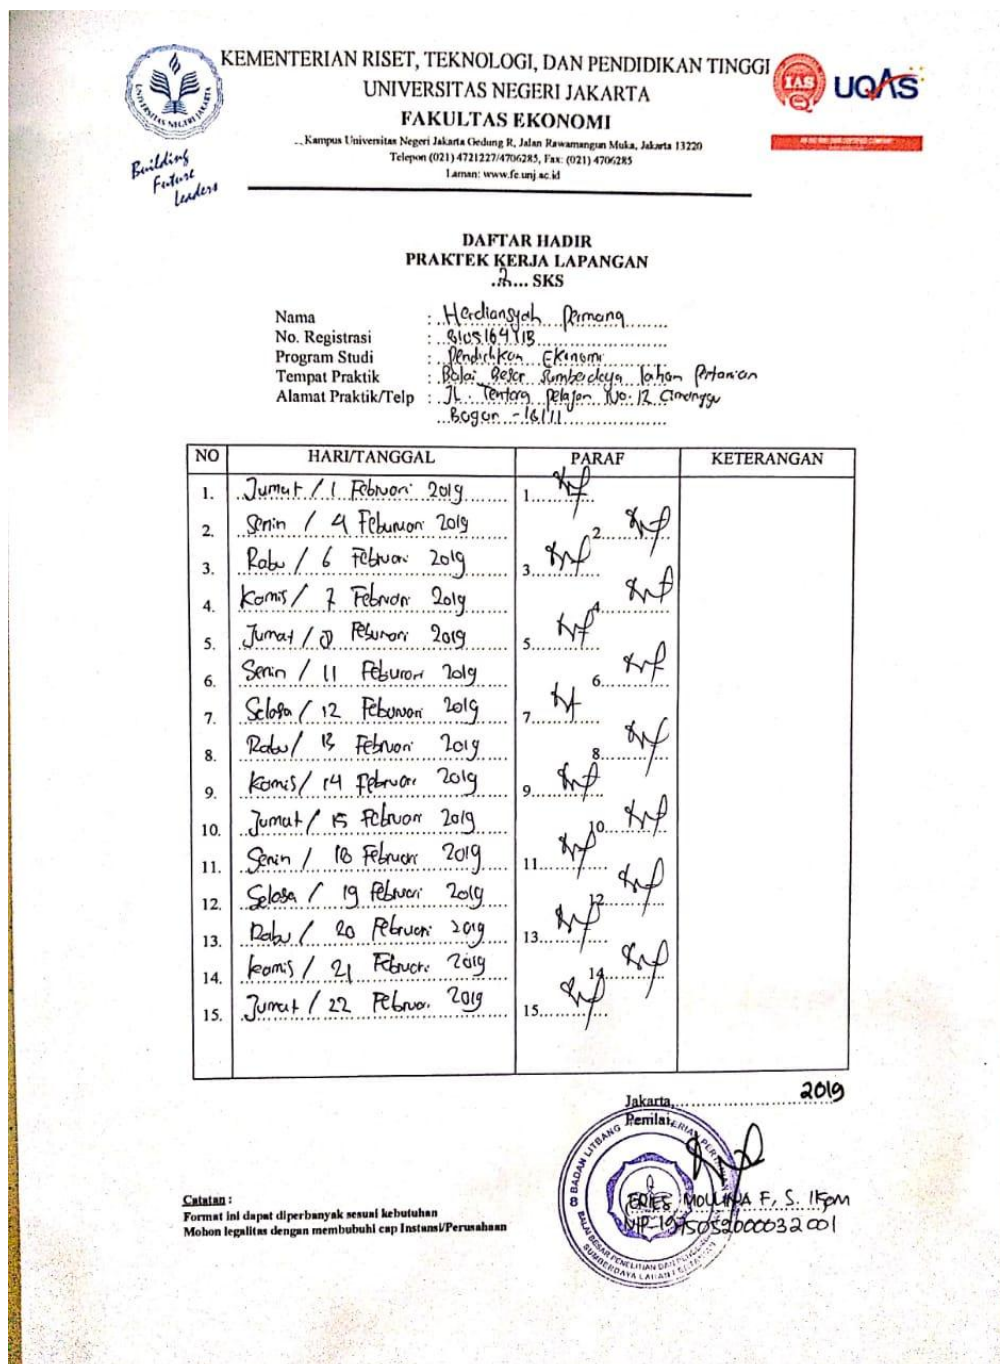 KEMENTERIAN RISET, TEKNOLOGI, DAN PENDIDIKAN TINGGI
UNIVERSITAS NEGERI JAKARTA
FAKULTAS EKONOMI
Kampus Universitas Negeri Jakarta Gedung R, Jalan Rawamangun Muka, Jakarta 13220
Telepon (021) 4721227/4706285, Fax: (021) 4706285
Laman: www.fe.unj.ac.id
UNIVERSITAS NEGERI JAKARTA
Building
Future
Leaders
IAS
UQAS
DAFTAR HADIR
PRAKTEK KERJA LAPANGAN
.2... SKS
Nama : Herdiansyah Permana
No. Registrasi :
Program Studi : Pendidikan Ekonomi
Tempat Praktik : Balai Besar Sumberdaya lahan Pertanian
Alamat Praktik/Telp : JL. Tentara pelajar No. 12 Cimanggu
Bogor - 16111
NO HARI/TANGGAL PARAF KETERANGAN
1. Jumat / 1 Februari 2019 1.
2. Senin / 4 Feburuari 2019 2.
3. Rabu / 6 Februari 2019 3.
4. Kamis / 7 Februari 2019 4.
5. Jumat / 8 Feburari 2019 5.
6. Senin / 11 Feburari 2019 6.
7. Selasa / 12 Feburuari 2019 7.
8. Rabu / 13 Februari 2019 8.
9. Kamis / 14 Februari 2019 9.
10. Jumat / 15 Februari 2019 10.
11. Senin / 18 Februari 2019 11.
12. Selasa / 19 Februari 2019 12.
13. Rabu / 20 Februari 2019 13.
14. Kamis / 21 Februari 2019 14.
15. Jumat / 22 Februari 2019 15.
Jakarta, 2019
Penilai
BADAN LITBANG
BALAI BESAR PENELITIAN DAN
SUMBERDAYA LAHAN PERTANIAN
ERIES MOLLINA F, S. IKom
Catatan :
Format ini dapat diperbanyak sesuai kebutuhan
Mohon legalitas dengan membubuhi cap Instansi/Perusahaan